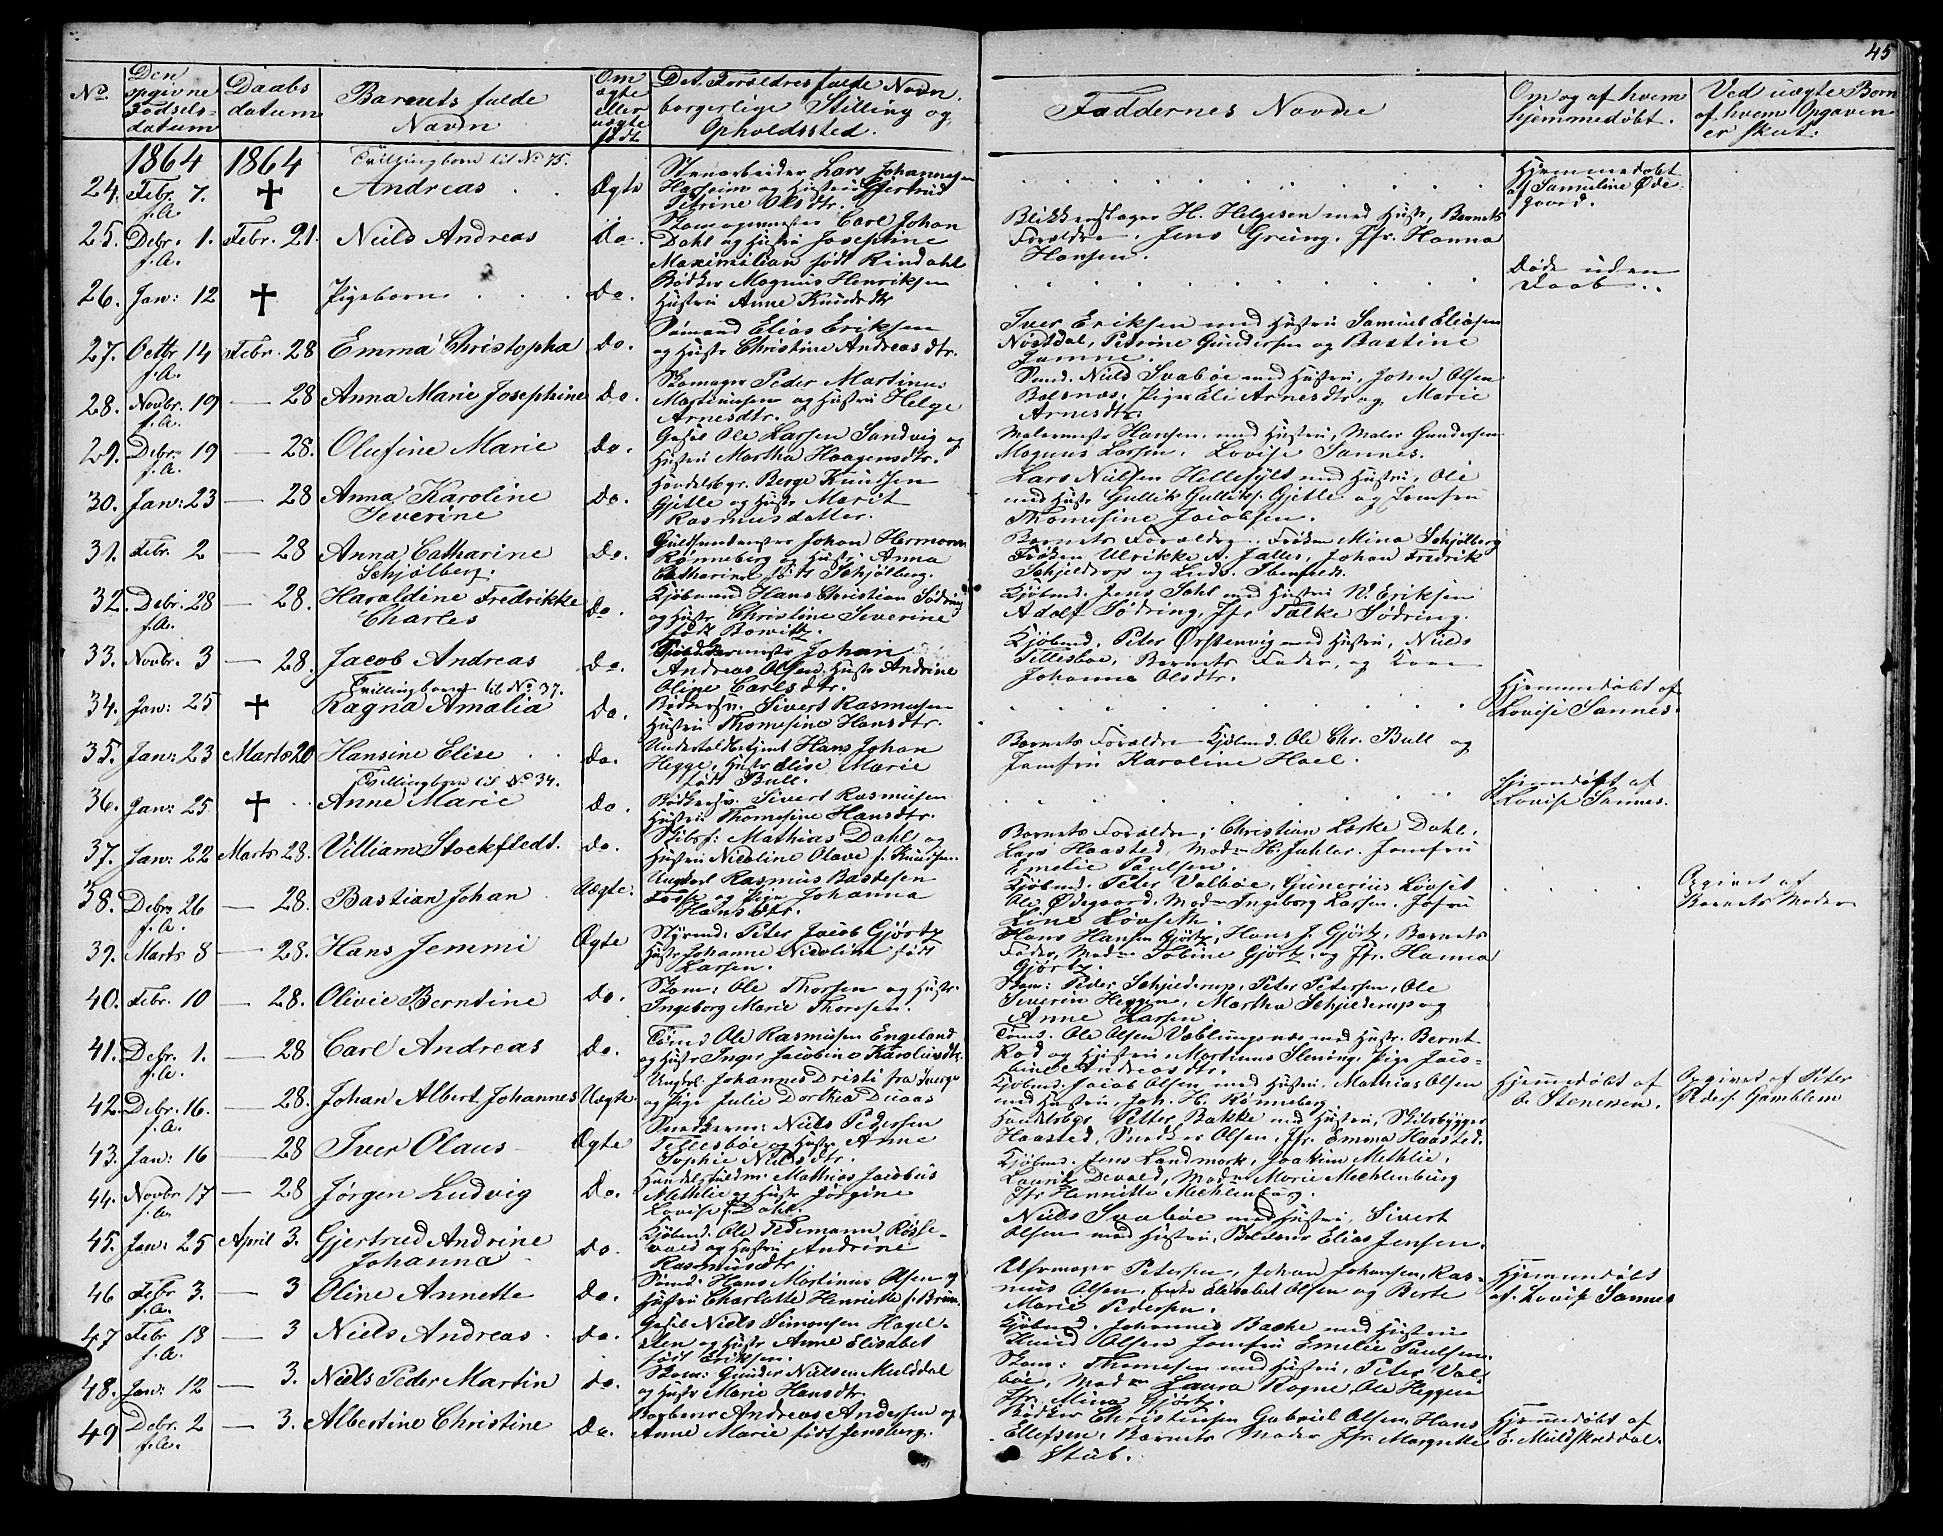 45
No
Den opgivne Fødsels-datum
Daabs datum
Barnets fulde Navn
Om ægte eller uægte født
Det. Forældres fulde Navn, borgerlige Stilling og Opholdssted.
Faddernes Navne
Om og af hvem hjemmedøbt.
Ved uægte Børn af hvem Opgaven er skeet.
1864 1864 Tvillingbarn til No 15.
24. Febr. 7. f.A. ✝ Andreas . . Ægte
Stenarbeider Lars Johannesen
og Hustru Gjertrud
Petrine Olsdtr.
Hjemmedøbt
af Samuline Øde-
gaard.
25. Debr. 1. f.A. Febr. 21. Niels Andreas Do.
Skomagermester Carl Johan
Dahl og Hustru Josephine
Maximilian født Rindahl
Blikkenslager H. Helgesen med Hustr, Barnets
Forældre, Jens Grüng, Jfr. Hanna
Hansen.
26. Jan: 12 ✝ Pigebarn . . . Do.
Bødker Magnus Henriksen
Hustru Anne Knudsdtr
Døde uden
Daab..
27. Octbr 14 f.A. Febr. 28 Emma Christopha Do.
Sømand Elias Eriksen
og Hustr Christine Andreasdtr.
Iver Eriksen med Hustru Samuel Eliasen
Nøstdal, Petrine Gundersen og Bastine
28. Novbr. 19 f.A. — 28 Anna Marie Josephine Do.
Skomager Peder Martinus
Martinusen og Hustru Helge
Arnesdtr.
Niels Svabøe med Hustru, John Olsen
Bolsnæs, Pige Eli Arnesdtr og Marie
Arnesdtr.
29. Debr. 19 f.A. — 28. Olufine Marie Do.
Gesel Ole Larsen Sandvig og
Hustru Martha Haagensdtr.
Malermestr Hansen med Hustru, Maler Gundersen
Magnus Larsen, Lovise Sannes.
30. Jan: 23 — 28 Anna Karoline
Severine Do.
Handelsbgr. Berge Knudsen
Gjelle og Hustr Marit
Rasmusdatter.
Lars Nielsen Hellesylt med Hustru, Ole
med Hustr Gullik Gulliks. Gjelle og Jomfru
Thomesine Jacobsen.
31. Febr. 2 — 28 Anna Catharine
Schjølberg. Do.
Johan Hermann
Rønneberg og Hustru Anna
Catharina født Schjølberg.
Barnets Forældre, Frøken Mina Schjølberg
Frøken Ulrikke A. Johan Fredrik
Schjelderup og Luds.
32. Debr. 28 f.A. — 28. Haraldine Fredrikke
Charles Do.
Kjøbmand Hans Christian Sødring
og Hustr Christine Severine
født
Kjøbmd. Jens Dahl med Hustru N. Eriksen
Adolf Sødring, Jfr Talke Sødring.
33. Novbr. 3 — 28. Jacob Andreas Do.
Johan
Andreas Olsen, Hustr Andrine
Oline Carlsdtr.
Kjøbmd. Peter Ørstenvig med Hustru, Niels
Tillesbøe, Barnets Fader, og Kone
Johanne Olsdtr.
Tvillingbarn til No 37.
34. Jan: 25 ✝ Ragna Amalia Do.
Bødkersv. Sivert Rasmusen
Hustru Thomesine Hansdtr.
Hjemmedøbt af
Lovise Sannes.
35. Jan: 23 Marts 20 Hansine Elise Do.
Undertoldbetjent Hans Johan
Hegge, Hustr Elise Marie
født Bull.
Barnets Forældre Kjøbmd. Ole Chr. Bull og
Jomfru Karoline Hoel.
Tvillingbarn til No 34.
36. Jan: 25 ✝ Anne Marie Do.
Bødkersv. Sivert Rasmusen
Hustru Thomesine Hansdtr.
Hjemmedøbt af
Lovise Sannes.
37. Jan: 22 Marts 28. Villiam Stockfledt. Do.
Mathias Dahl og
Hustru Nicoline Olave f. Knudsen.
Barnets Forældre, Christian Læske Dahl,
Lars Haasted, Madm H. Juhler. Jomfru
Emelie Paulsen.
38. Debr. 26 f.A. — 28. Bastian Johan Uægte.
Ungkarl Rasmus Bastesen
og Pige Johanna
Hansdtr.
Kjøbmd. Peter Valbøe, Gunerius Løvset
Ole Ødegaard, Madm Ingeborg Larsen. Jofru
Line Løvseth.
Opgivet af
Barnets Moder
39. Marts 8 — 28. Hans Jemmi Ægte
Styrmd: Peter Jacob Gjørtz
Hustr Johanne Nicoline født
Larsen.
Hans Hansen Gjørtz, Hans J. Gjørtz, Barnets
Fader, Madm Tobine Gjørtz og Jfr. Hanna
Gjørtz.
40. Febr. 10 — 28. Olivie Berntine Do.
Skom: Ole Thorsen og Hustr.
Ingeborg Marie Thoresen.
Skom: Peder Schjelderup, Peter Petersen, Ole
Severin Heggen, Martha Schjelderup og
Anne Larsen.
41. Debr. 1. f.A. — 28 Carl Andreas Do.
Tømd Ole Rasmusen Engeland
og Hustr Inger Jacobine Karolusdtr.
Tømd. Ole Olsen med Hustr. Bernt
Rød og Hustru, Martinus Slening, Pige Jaco-
bine Andreasdtr.
42. Debr. 16. f.A. — 28. Johan Albert Johannes Uægte
Ungkl. Johannes Dristi fra Sverge
og Pige Julie Dorthea
Kjøbmd. Jacob Olsen med Hustru, Mathias Olsen
med Hustru, Joh. H. Rønneberg
Hjemmedøbt af
Stenersen.
Opgivet af Peter
Gamblem
43. Jan: 16 — 28 Iver Olaus Ægte
Niels Pedersen
Tillesbøe og Hustr Anne
Sophie Nielsdtr.
Handelsbgr Petter Bakke med Hustru, Skibsbygger
Haasted, Snedker Olsen, Jfr. Emma Haasted.
44. Novbr 17 f.A. — 28 Jørgen Ludvig Do.
Mathias Jacobus
Methlie og Hustr Jørgine
Lovise f. Dahl.
Kjøbmd. Jens Landmark, Joakim Methlie,
Laurits Devold, Madm Marie Mechlenburg
Jfr Henriette Mechlenburg.
45. Jan: 25 April 3. Gjertrud Andrine
Johanna Do.
Kjøbmd. Ole Tidemann Røsse-
vold og Hustru Andrine
Rasmusdtr
Niels Svabøe med Hustru, Sivert
Olsen med Hustru, Elias Jensen.
46 Febr 3. f.A. — 3 Oline Annette Do.
Hans Martinus Olsen og
Hustru Charlotte Henriette f. Bruun.
Uhrmager Petersen, Johan Johansen, Ras-
mus Olsen, Elisabet Olsen og Berte
Marie Pedersen.
Hjemmedøbt
af Lovise Sannes
47 Febr. 18 f.A. — 3 Niels Andreas . Do.
Gesel Niels Simonsen Hagel-
sten og Hustr Anne Elisabet
født Eriksen.
Kjøbmd. Johannes Bakke med Hustru
Knud Olsen Jomfru Emelie Paulsen.
48. Jan: 12 — 3. Niels Peder Martin Do.
Skom: Gunder Nielsen Muldal
og Hustr Marie Hansdtr.
Skom: Thomesen med Hustru, Peter Val-
bøe, Madm Laura Rogne, Ole Heggen
Jfr. Mina Gjørtz.
49 Debr. 2 f.A. — 3. Albertine Christine Do.
Andreas Andersen og
Anne Marie født Jensberg.
Bødker Christensen Gabriel Olsen, Hans
Ellefsen, Barnets Moder Jfr. Margrethe
Stub.
Hjemmedøbt af
E. Muldskreddal.